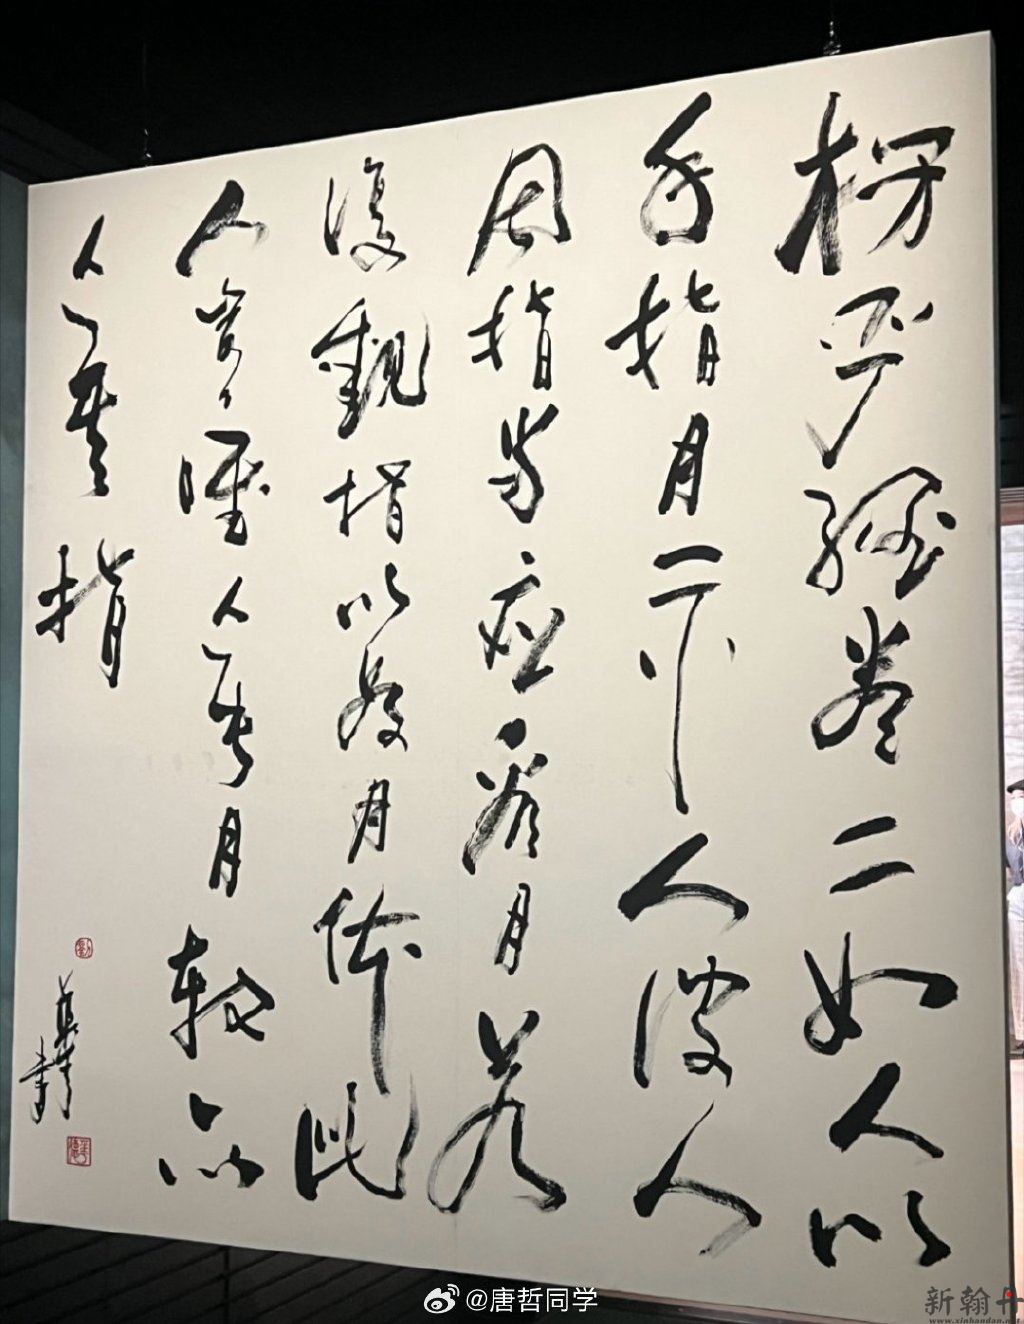 楞严經卷二如人以
手指月示人彼人
因指当应看月若
復觀指以为月体此
人岂唯亡失月轮亦
亡其指
书
@唐哲同学
新翰丹
www.xinhandan.net